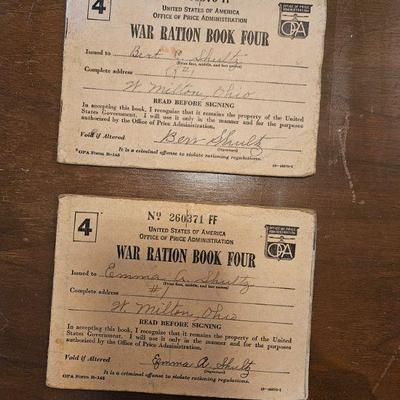 4
UNITED STATES OF AMERICA
OFFICE OF PRICE ADMINISTRATION
OPA
WAR RATION BOOK FOUR
Issued to Bert Shultz
(Print first, middle, and last names)
Complete address #1
W. Milton, Ohio
READ BEFORE SIGNING
In accepting this book, I recognize that it remains the property of the United
States Government. I will use it only in the manner and for the purposes
authorized by the Office of Price Administration.
Void if Altered Bert Shultz
(Signature)
It is a criminal offense to violate rationing regulations.
OPA Form R-145
4
Nº 260371 FF
UNITED STATES OF AMERICA
OFFICE OF PRICE ADMINISTRATION
OPA
WAR RATION BOOK FOUR
Issued to Emma A. Shultz
(Print first, middle, and last names)
Complete address #1
W. Milton, Ohio
READ BEFORE SIGNING
In accepting this book, I recognize that it remains the property of the United
States Government. I will use it only in the manner and for the purposes
authorized by the Office of Price Administration.
Void if Altered Emma A Shultz
(Signature)
It is a criminal offense to violate rationing regulations.
OPA Form R-145